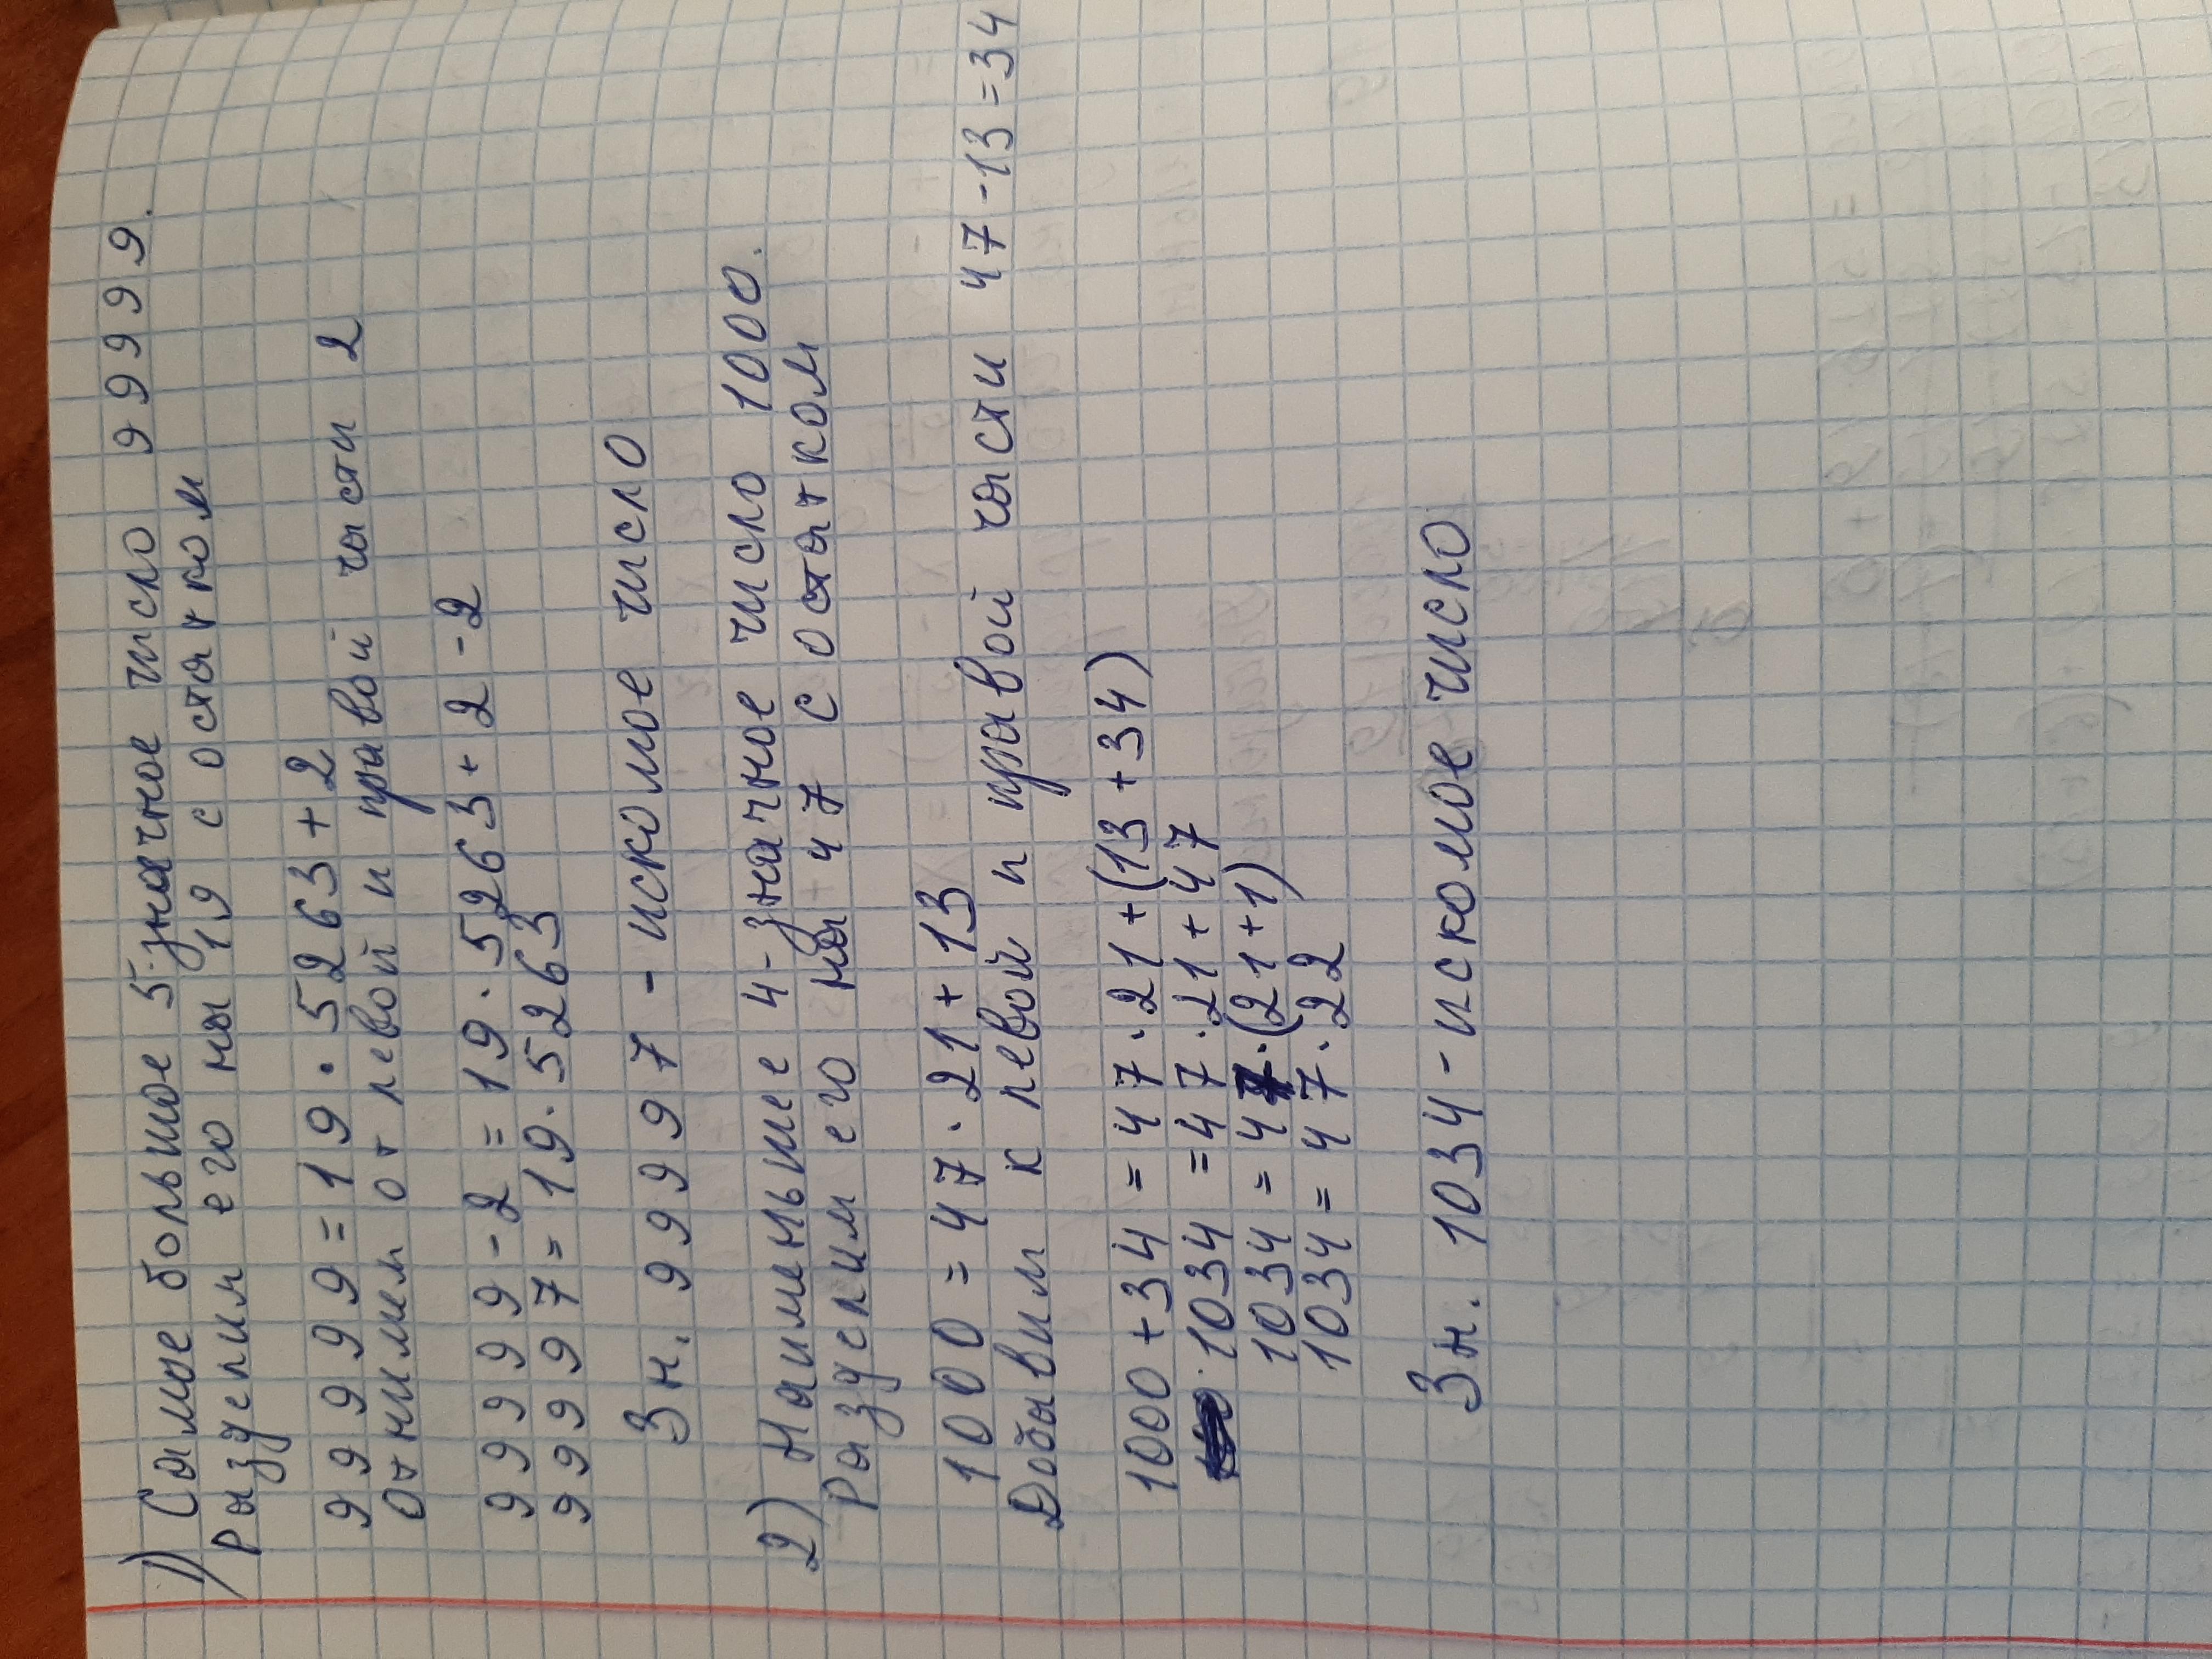 1) Самое большое 5-значное число 99999.
Разделим его на 19 с остатком
99999=19·5263+2
Отнимем от левой и правой части 2
99999-2=19·5263+2-2
99997=19·5263
Зн. 99997 - искомое число
2) Наименьшее 4-значное число 1000.
Разделим его на 47 с остатком
1000=47·21+13
Добавим к левой и правой части 47-13=34
1000+34=47·21+(13+34)
1034=47·21+47
1034=47·(21+1)
1034=47·22
Зн. 1034-искомое число